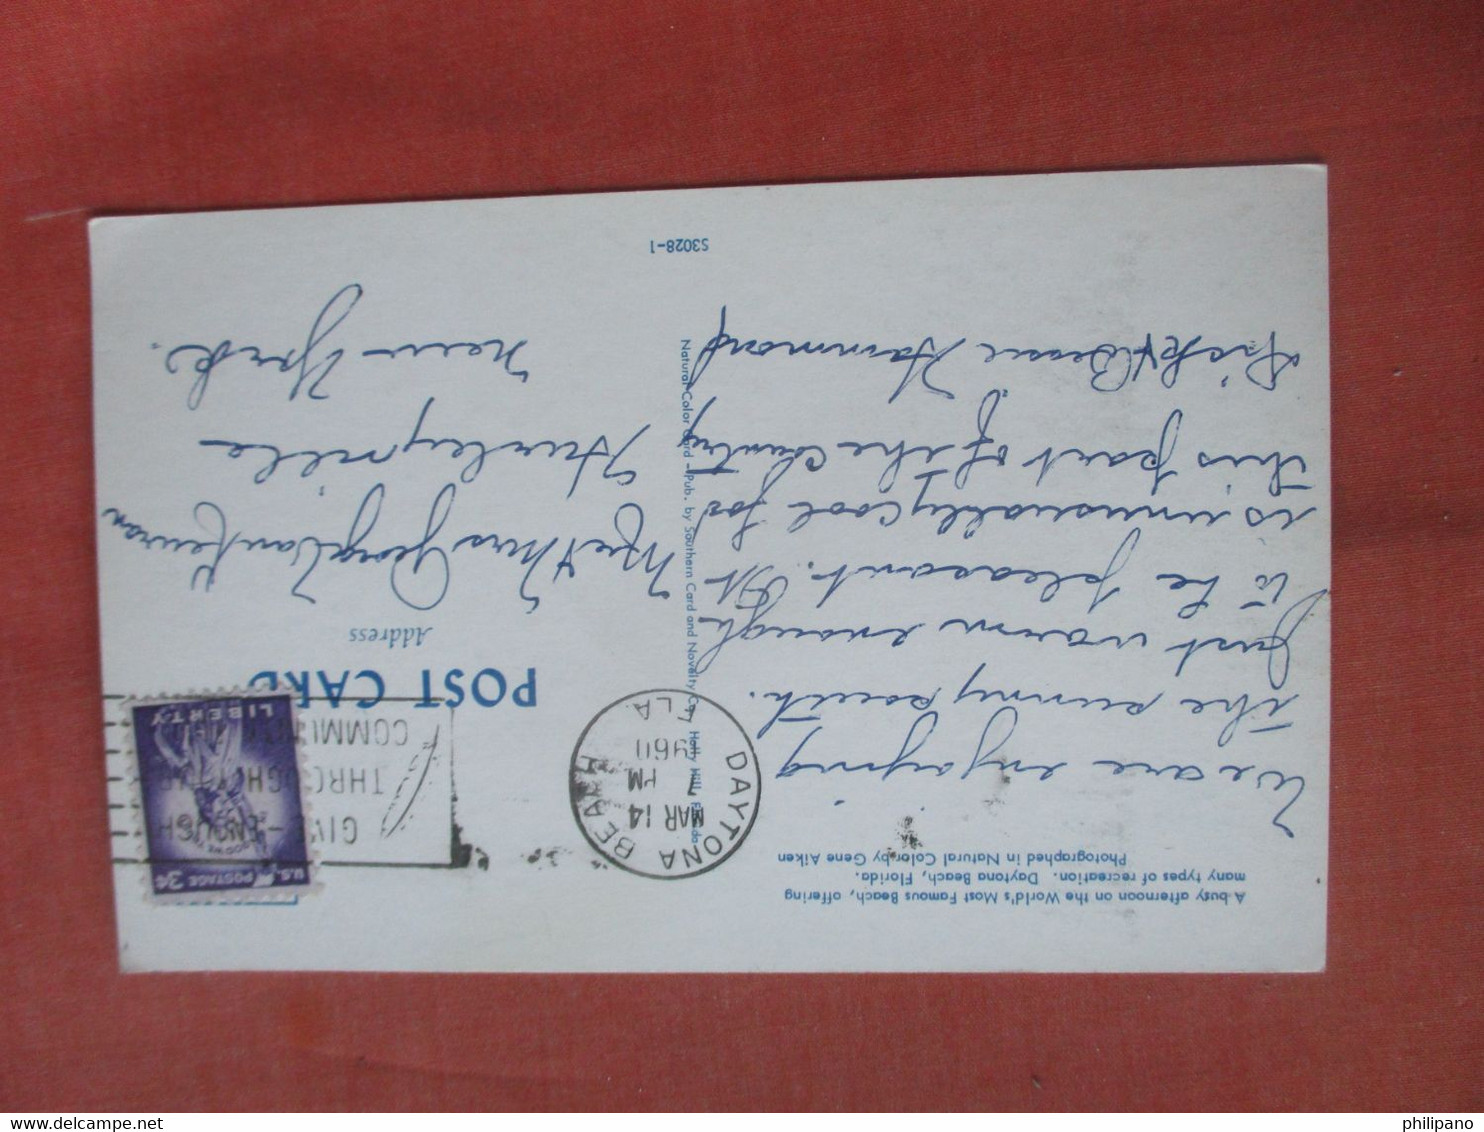 A busy afternoon on the World's Most Famous Beach, offering
many types of recreation. Daytona Beach, Florida.
Photographed in Natural Color by Gene Aiken
We are enjoying
the sunny south.
Just warm enough
to be pleasant. It
is unusually cool for
this part of the country
& Bessie Hammond
Natural Color Card - Pub. by Southern Card and Novelty Co., Holly Hill, Florida
S3028-1
DAYTONA BEACH
MAR 14
PM
1960
FLA.
GIVE ENOUGH
THROUGH YOUR
COMMUNITY
U.S. POSTAGE 3¢
IN GOD WE TRUST
LIBERTY
POST CARD
Address
Mr & Mrs George Van Keuran
Hurleyville
New York.
philipano